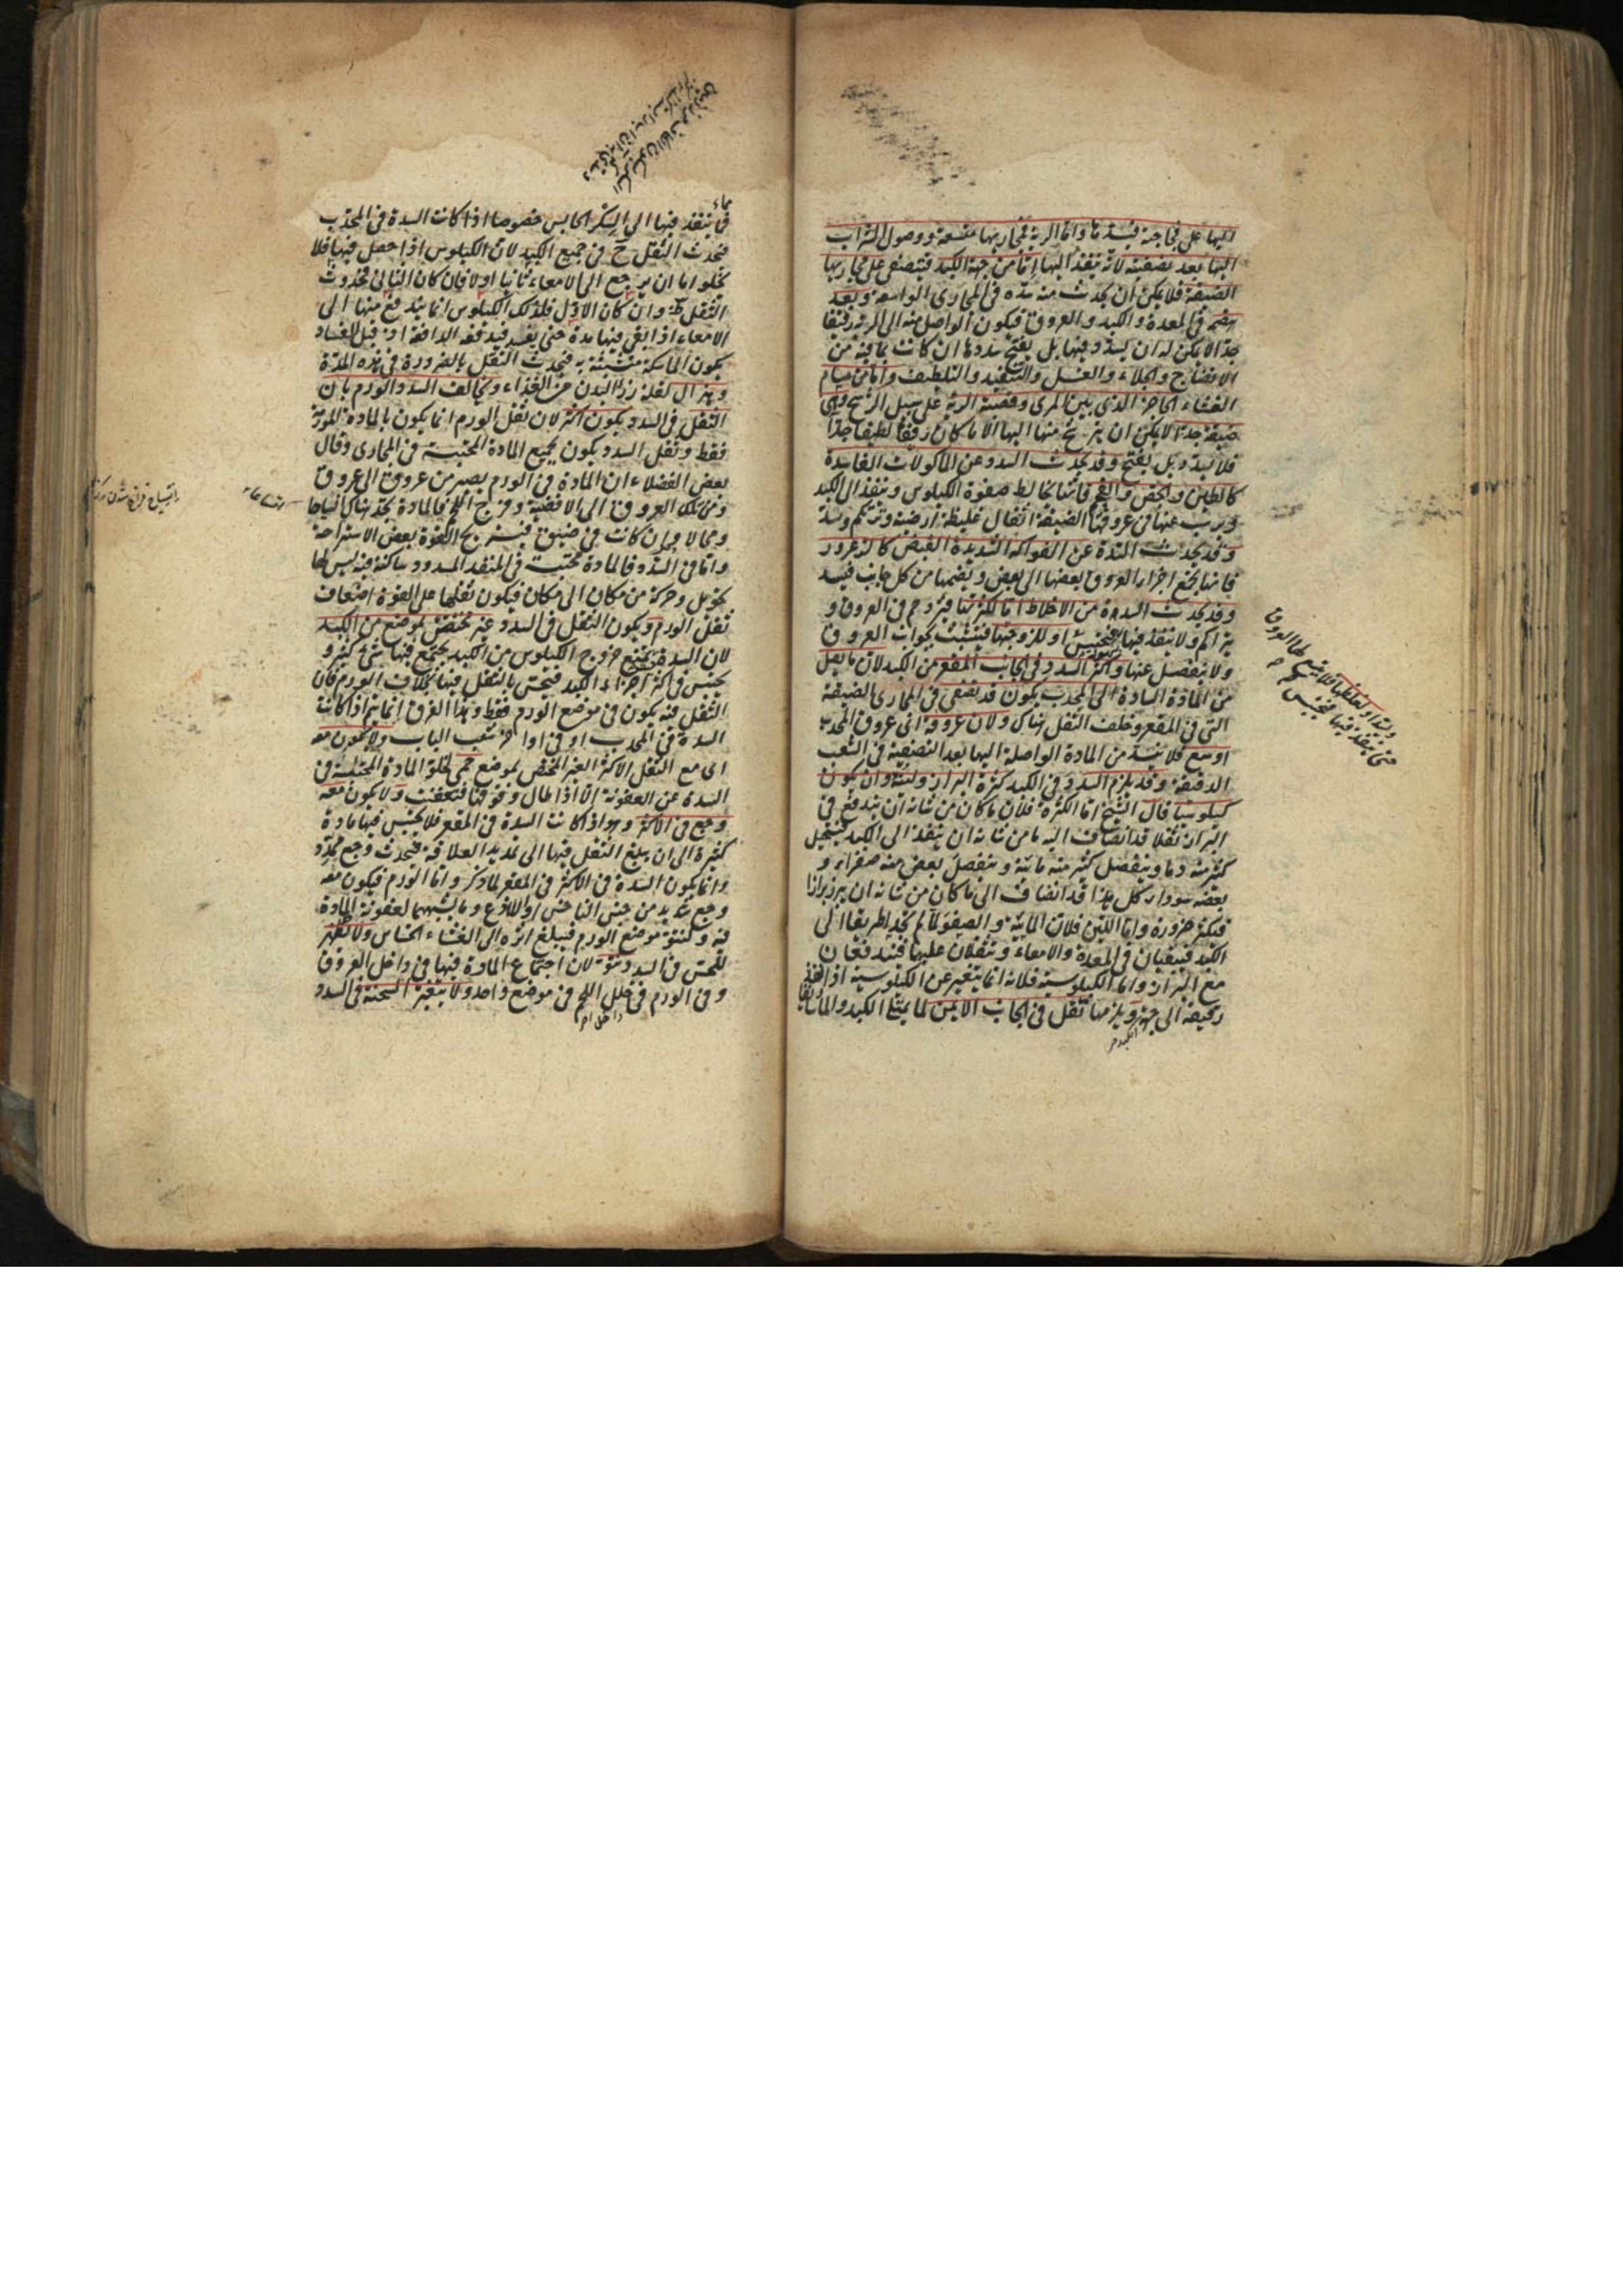 اليها على فجاجته فيسدها واما الرية فمجاريها متسعة ووصول الشراب
اليها بعد تصفيته لانه ينفذ اليها اما من جهة الكبد فيتصفى على مجاريها
الضيقة فلا يمكن ان يحدث منه سدة فى المجارى الواسعة وبعد
هضم فى المعدة والكبد والعروق فيكون الواصل منه الى الرية رقيقا
جدا لا يمكن له ان يسدد فيها بل يفتح سددها ان كانت بما فيه من
الانضاج والجلاء والغسل والتنفيذ والتلطيف واما من مسام
الغشاء الحاجز الذى بين المرى وقصبة الرية على سبيل الرشح وهى
ضيقة جدا لا يمكن ان يترشح منها اليها الا ما كان رقيقا لطيفا جدا
فلا يسدد بل يفتح وقد يحدث السدد عن الماكولات الفاسدة
كالطين والجص والفحم فانها تخالط صفوة الكيلوس وتنفذ الى الكبد
ويرسب عنها فى عروقها الضيقة اثفال غليظة ارضية وتتراكم وتسد
وقد يحدث السدة عن الفواكه الشديدة القبض كالزعرور
فانها تجمع اجزاء العروق بعضها الى بعض وتضمها من كل جانب فيسد
وقد يحدث السدة من الاخلاط اما لكثرتها فيزدحم فى العروق و
يتراكم ولا ينفذ فيها فيحتبس او للزوجتها فيتشبث بجوانب العروق
ولا ينفصل عنها واكثر السدد فى الجانب المقعر من الكبد لان ما يصل
من المادة السادة الى المحدب يكون قد تصفى فى المجارى الضيقة
التى فى المقعر وخلف الثفل هناك ولان عروقه اى عروق المحدب
اوسع فلا ينسد من المادة الواصلة اليها بعد التصفية فى الشعب
الدقيقة وقد يلزم السدد فى الكبد كثرة البراز ولينه وان يكون
كيلوسيا قال الشيخ اما الكثرة فلان ما كان من شانه ان يندفع فى
البراز ثفلا قد انضاف اليه ما من شانه ان ينفذ الى الكبد فيستحيل
كثير منه دما وينفصل كثير منه مائية وينفصل بعض منه صفراء و
بعضه سوداء كل هذا قد انضاف الى ما كان من شانه ان يبرز برازا
فيكثر ضرورة واما اللين فلان المائية والصفو لما لم تجد طريقا الى
الكبد فيبقيان فى المعدة والامعاء وتثقلان عليها فتندفعان
مع البراز واما الكيلوسية فلانه انما يتغير عن الكيلوسية اذا انفذ
رحيقه الى جهة ويلزمها ثقل فى الجانب الايمن لما يمتلى الكبد والماساريقا
الكبد م
ولسدا او لغلظها فلا يتسع لها العروق
حتى ينفذ فيها فيحتبس م
مما
ينفذ فيها الى السكر الحابس خصوصا اذا كانت السدة فى المحدب
فيحدث الثقل ح فى جميع الكبد لان الكيلوس اذا حصل فيها فلا
يخلو اما ان يرجع الى الامعاء ثانيا او لا فان كان الثانى فحدوث
الثقل ظ وان كان الاول فلذلك الكيلوس انما يندفع منها الى
الامعاء اذا بقى فيها مدة حتى يفسد فيدفعه الدافعة اذ قبل الفساد
يكون الماسكة متشبثة به فيحدث الثقل بالضرورة فى هذه المدة
وهزال لقلة رزء البدن من الغذاء ويخالف السدد الورم بان
الثقل فى السدد يكون اكثر لان ثقل الورم انما يكون بالمادة المورمة
فقط وثقل السدد يكون بجميع المادة المحتبسة فى المجارى وقال
بعض الفضلاء ان المادة فى الورم يصير من عروق الى عروق
ومن تلك العروق الى الافضية وفرج اللحم فالمادة تجد هناك انسياحا
ومجالا وان كانت فى ضيق فيستريح القوة بعض الاستراحة
واما فى السدد فالمادة محتبسة فى المنفذ المسدود ساكنة فيه ليس لها
تحويل وحركة من مكان الى مكان فيكون ثقلها على القوة اضعاف
ثقل الورم ويكون الثقل فى السدد غير مختص بموضع من الكبد
لان السدة يمنع خروج الكيلوس من الكبد يجتمع فيها شئ كثير و
يحتبس فى اكثر اجزاء الكبد فيحس بالثقل فيها بخلاف الورم فان
الثقل فيه يكون فى موضع الورم فقط وهذا الفرق انما يتم اذا كانت
السدة فى المحدب او فى اواخر شعب الباب ولا يكون معه
اى مع الثقل الاكثر الغير المختص بموضع حمى لخلو المادة المحتبسة فى
السدة عن العفونة الا اذا طال وقوفها فتعفنت ولا يكون معه
وجع فى الاكثر وهو اذا كانت السدة فى المقعر فلا يحتبس فيها مادة
كثيرة الى ان يبلغ الثقل فيها الى تمديد العلاقة فيحدث وجع ممدد
وانما يكون السدة فى الاكثر فى المقعر لما ذكر واما الورم فيكون معه
وجع شديد من جنس الناخس او اللاذع وما يشبههما لعفونة المادة
فيه ولنتو موضع الورم فيبلغ اثره الى الغشاء الحساس ولا يظهر
للحس فى السدد نتو لان اجتماع المادة فيها فى داخل العروق
وفى الورم فى خلل اللحم فى موضع واحد ولا يتغير السحنة فى السدد